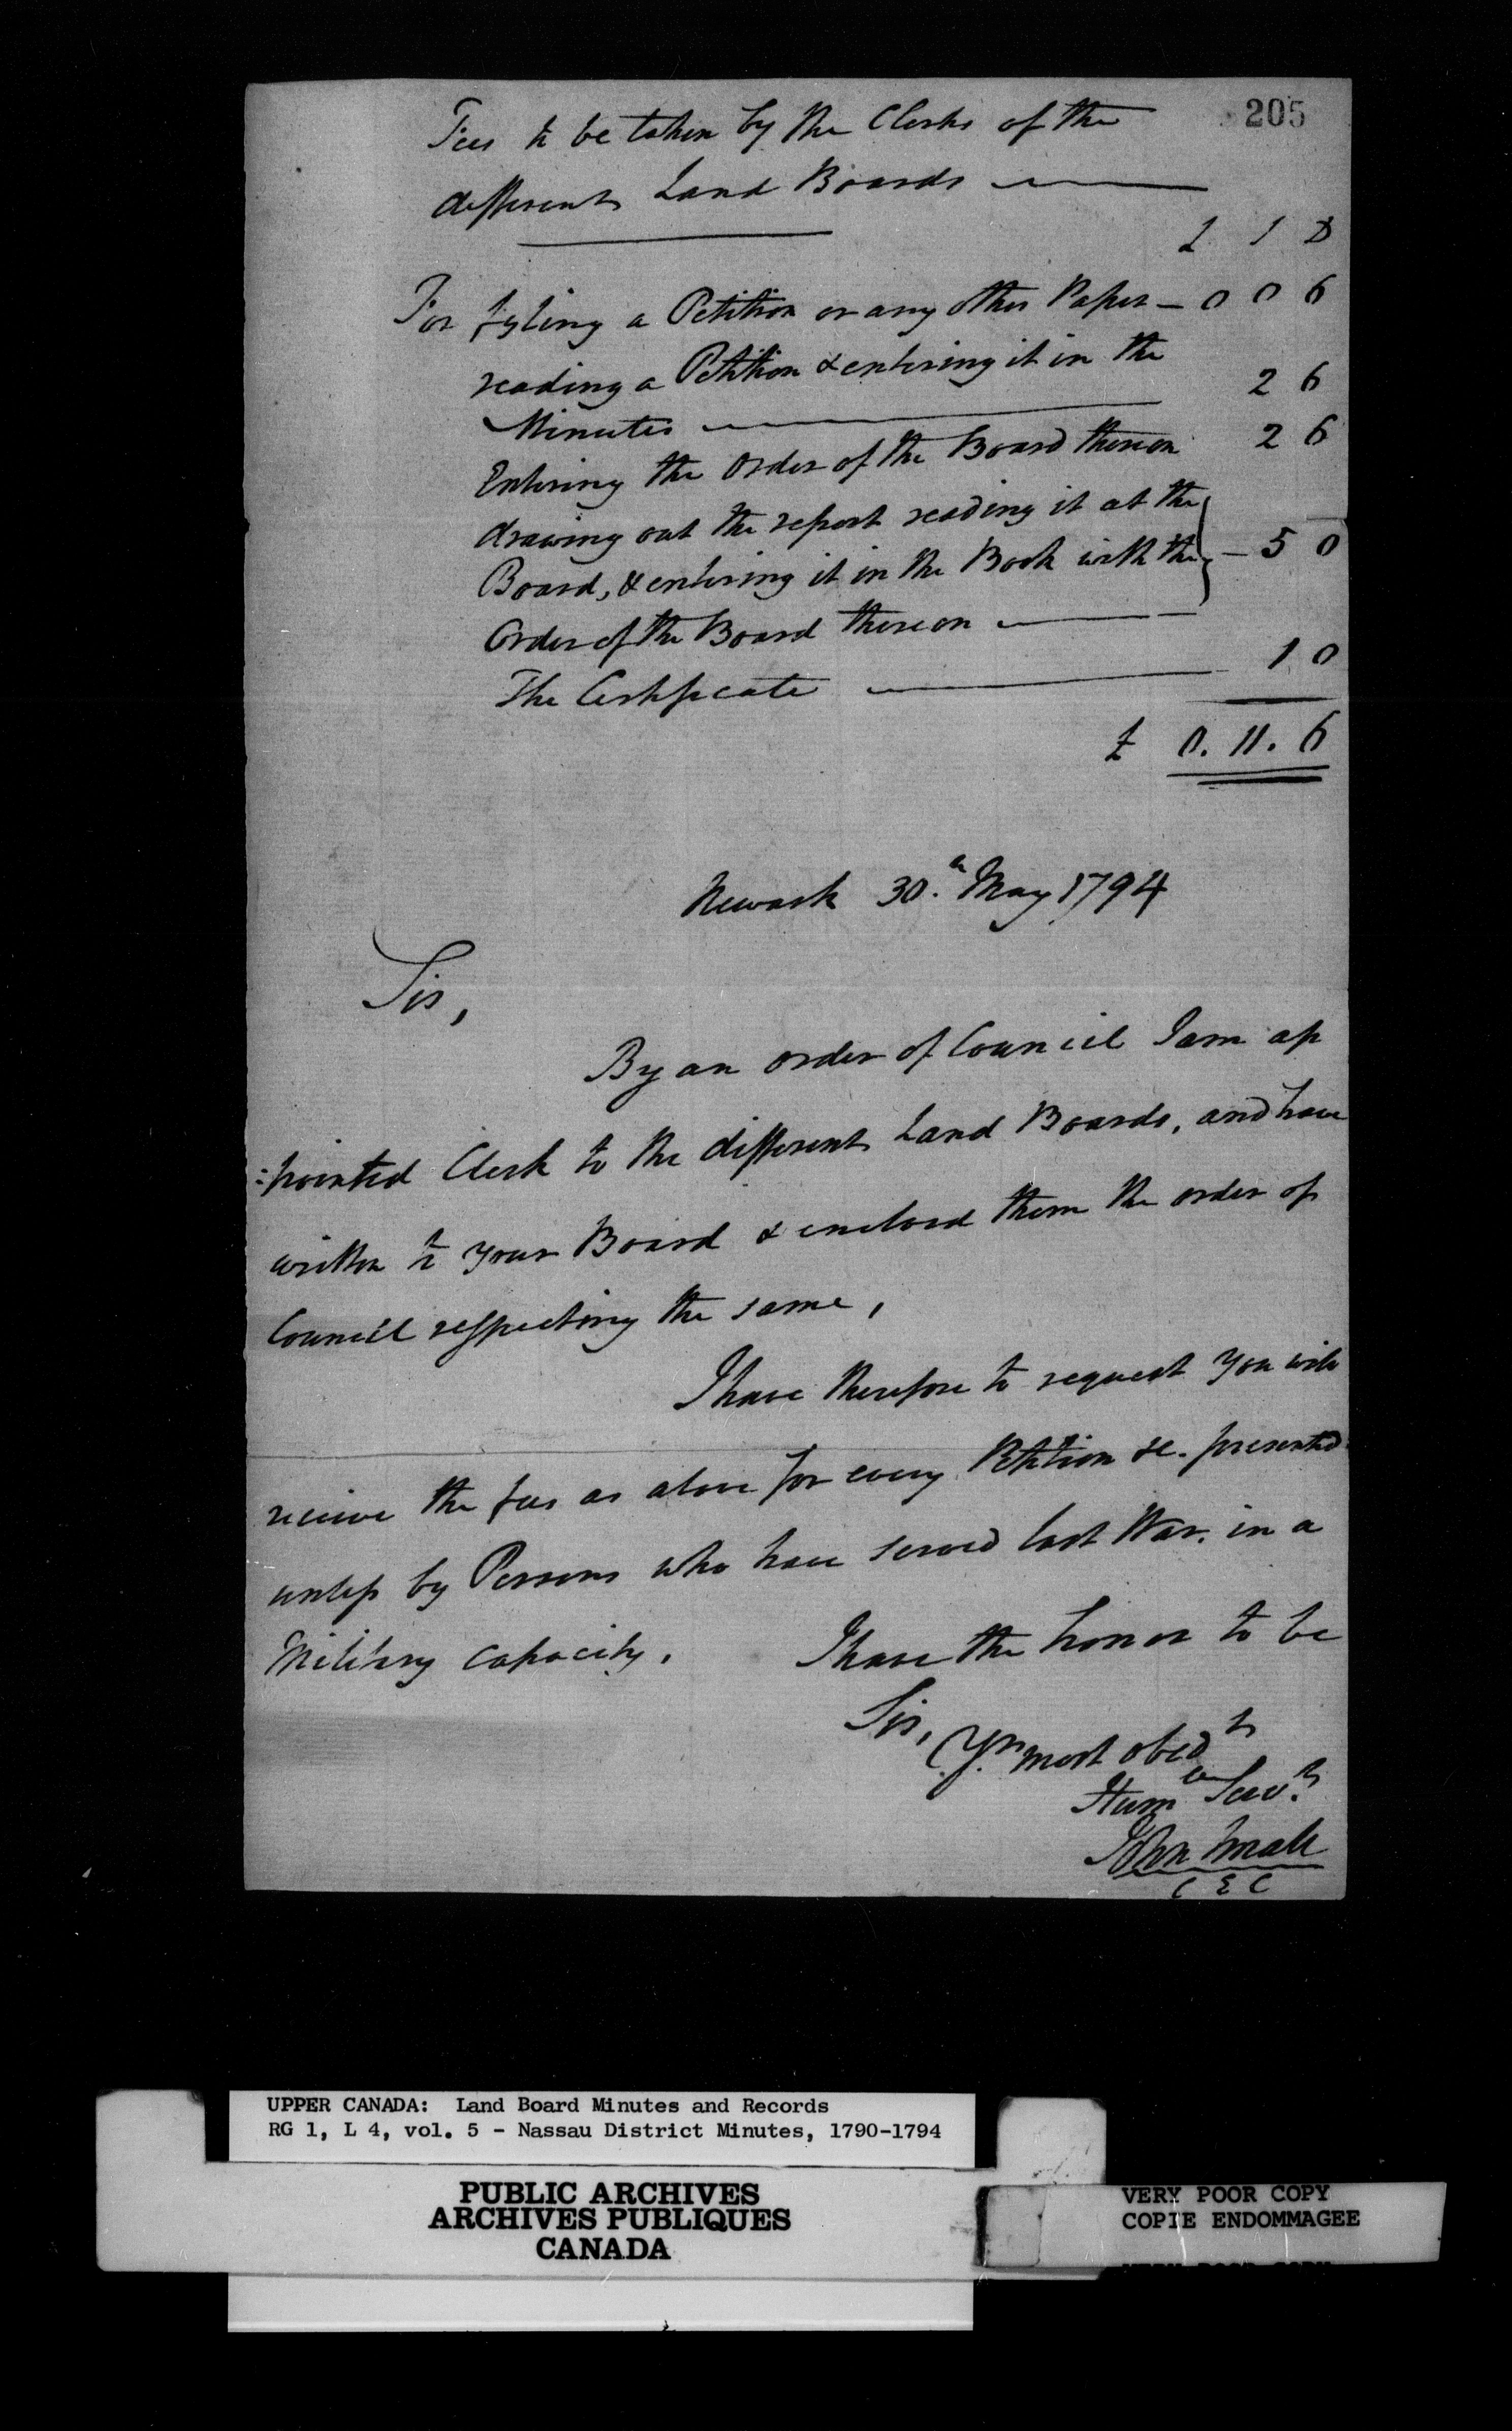 205
Fees to be taken by the Clerks of the
different Land Boards
£ S D
For fyling a Petition or any other Paper - 0 0 6
reading a Petition & entering it in the
Minutes 2 6
Entering the Order of the Board thereon 2 6
drawing out the report reading it at the
Board, & entering it in the Book with the - 5 0
Order of the Board thereon
The Certificate 1 0
£ 0. 11. 6
Newark 30.th May 1794
Sir,
By an order of Council I am ap
:pointed Clerk to the different Land Boards, and have
written to your Board & enclosed them the order of
Council respecting the same,
I have therefore to request you will
receive the fees as above for every Petition &c. presented
unless by Persons who have served last War, in a
Military Capacity.
I have the honor to be
Sir,
Yr. most obedt
Humle Servt.
John Small
C E C
UPPER CANADA: Land Board Minutes and Records
RG 1, L 4, vol. 5 - Nassau District Minutes, 1790-1794
PUBLIC ARCHIVES
ARCHIVES PUBLIQUES
CANADA
VERY POOR COPY
COPIE ENDOMMAGEE